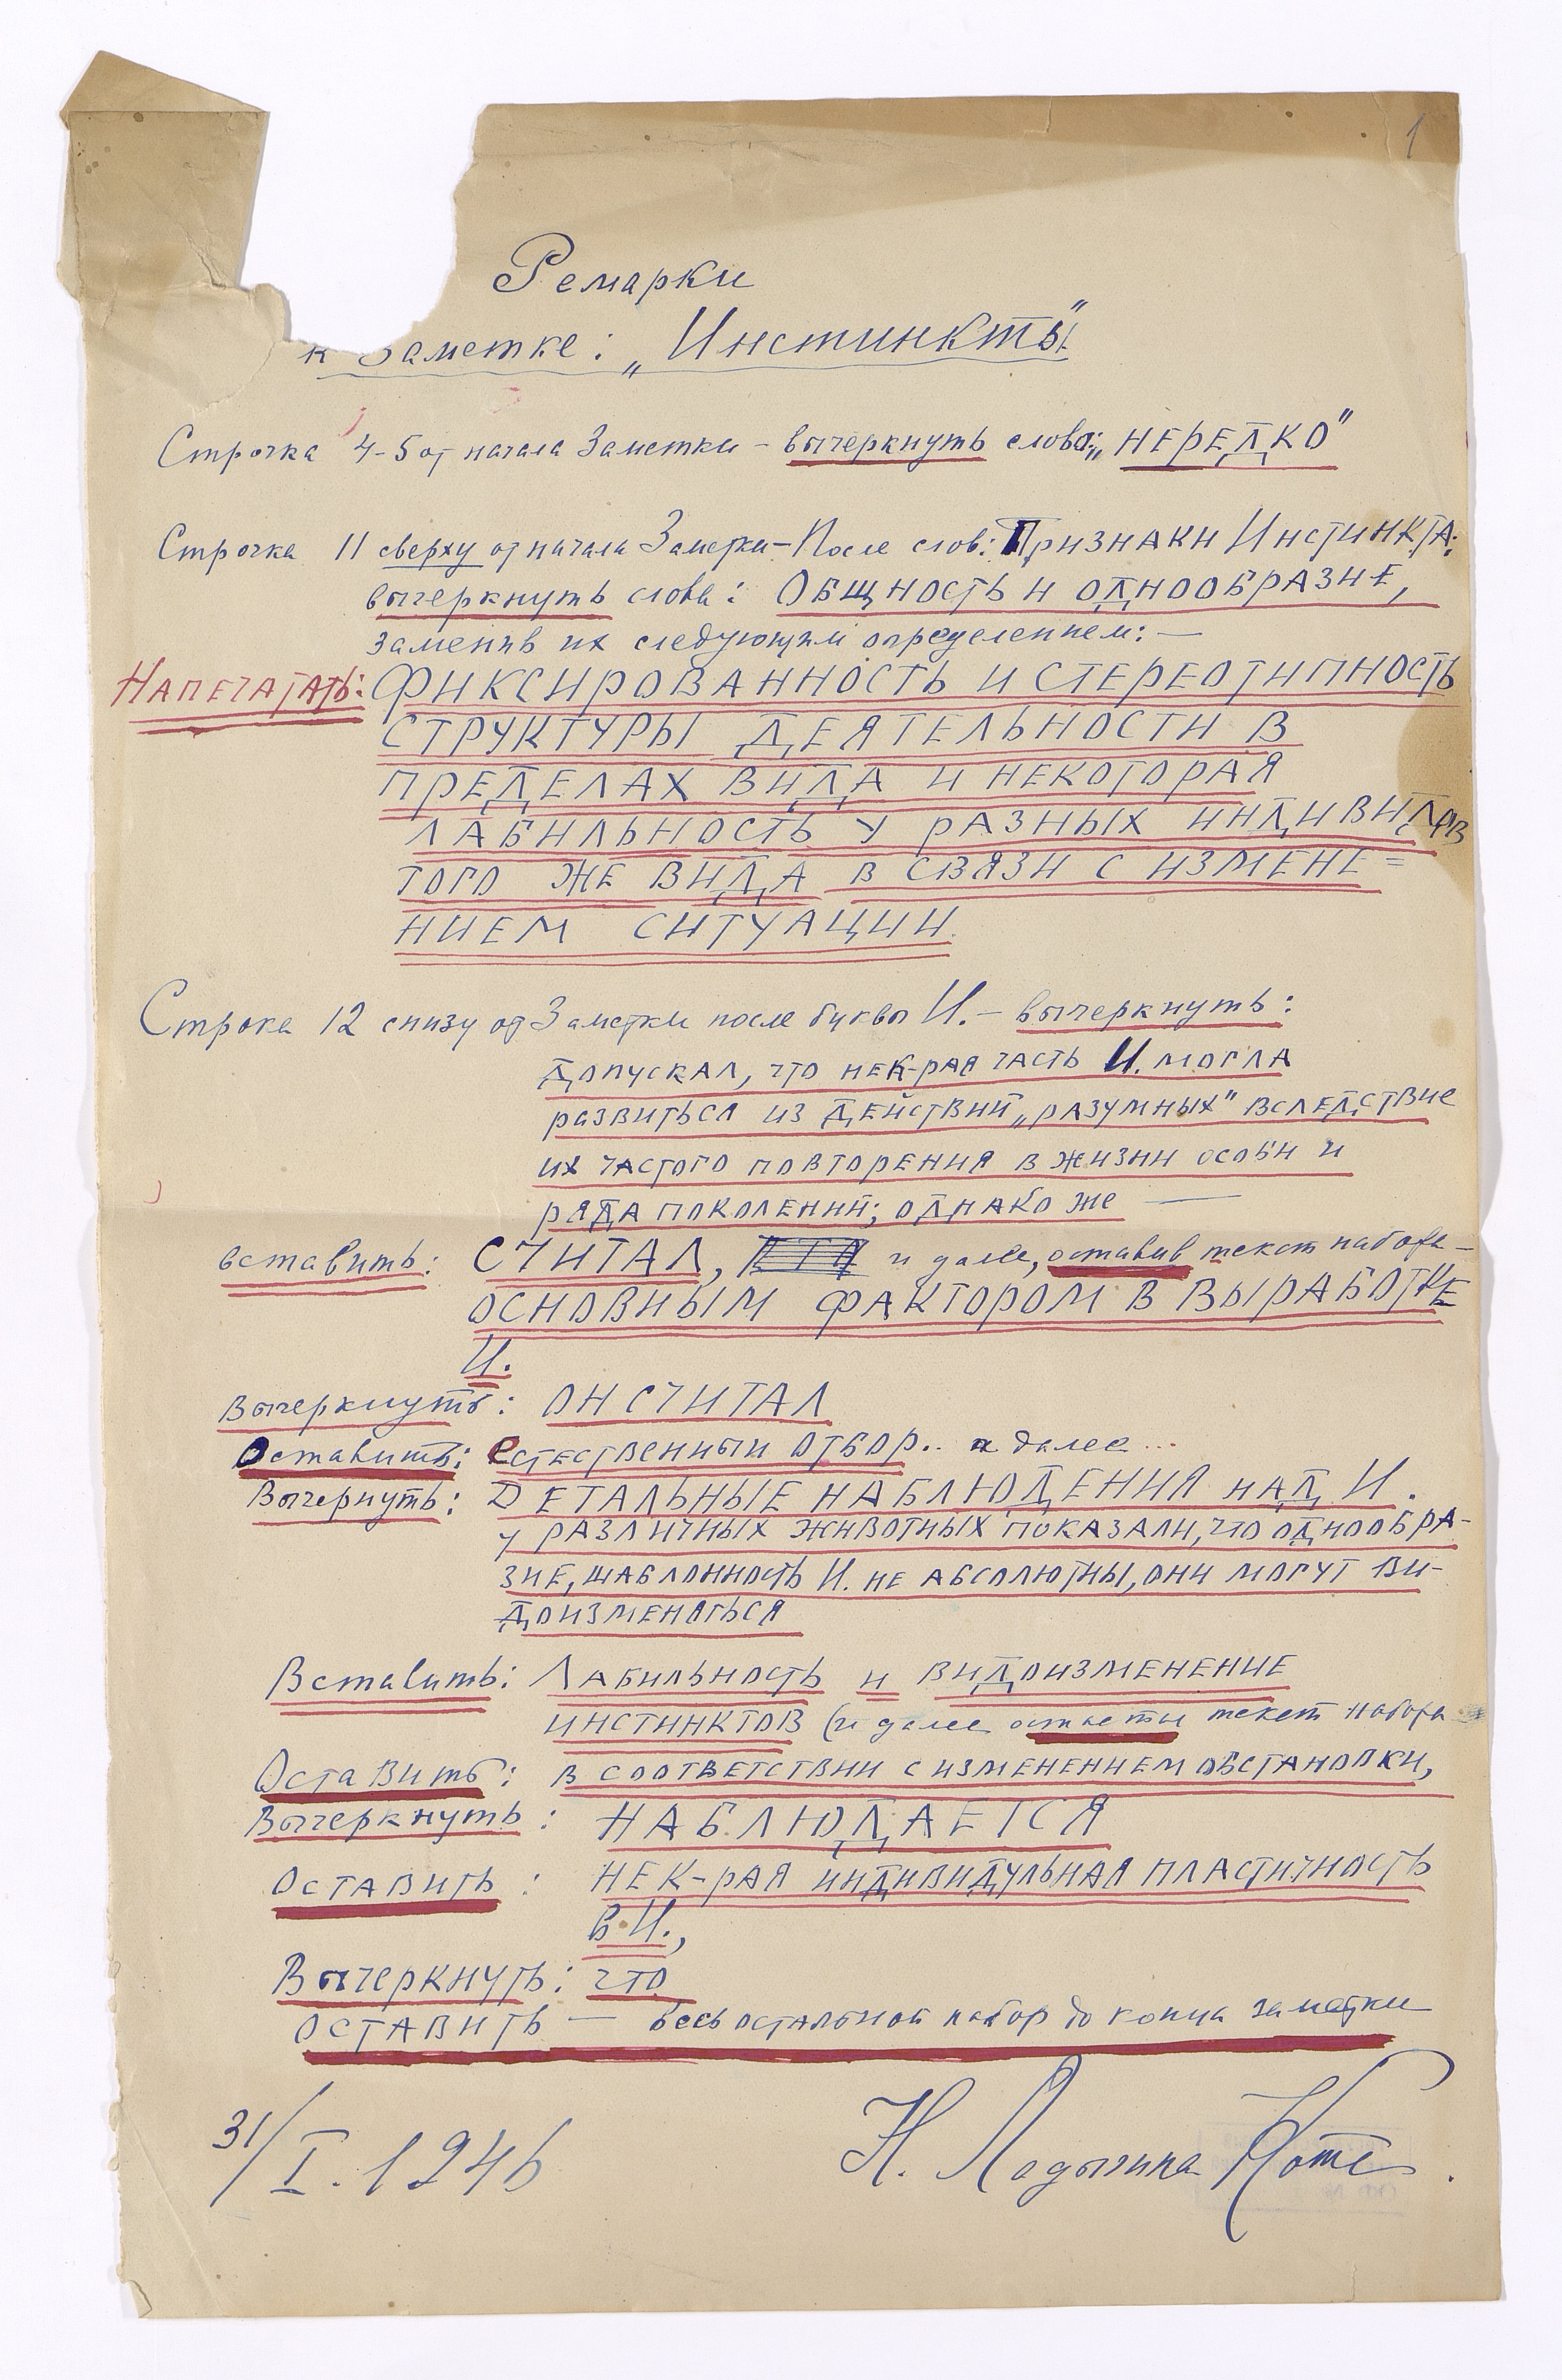 1
Ремарки
к Заметке: „Инстинкты"
Строчка 4-5 от начала Заметки – вычеркнуть слово: „НЕРЕДКО"
Строчка 11 сверху от начала Заметки – После слов: Признаки Инстинкта:
вычеркнуть слова: Общность и однообразие,
заменив их следующим определением: —
Напечатать: ФИКСИРОВАННОСТЬ И СТЕРЕОТИПНОСТЬ
СТРУКТУРЫ ДЕЯТЕЛЬНОСТИ В
ПРЕДЕЛАХ ВИДА И НЕКОТОРАЯ
ЛАБИЛЬНОСТЬ У РАЗНЫХ ИНДИВИДОВ
ТОГО ЖЕ ВИДА В СВЯЗИ С ИЗМЕНЕ=
НИЕМ СИТУАЦИИ.
Строка 12 снизу от Заметки после буквы И. – вычеркнуть:
допускал, что нек-рая часть И. могла
развиться из действий „разумных" вследствие
их частого повторения в жизни особи и
ряда поколений; однако же —
вставить: СЧИТАЛ, и далее, оставив текст набора –
ОСНОВНЫМ ФАКТОРОМ В ВЫРАБОТКЕ
И.
Вычеркнуть: ОН СЧИТАЛ
Оставить: Естественный отбор.. и далее...
Вычернуть: ДЕТАЛЬНЫЕ НАБЛЮДЕНИЯ НАД И.
У РАЗЛИЧНЫХ ЖИВОТНЫХ ПОКАЗАЛИ, ЧТО ОДНООБРА-
ЗИЕ, ШАБЛОННОСТЬ И. НЕ АБСОЛЮТНЫ, ОНИ МОГУТ ВИ-
ДОИЗМЕНЯТЬСЯ
Вставить: Лабильность и видоизменение
инстинктов (и далее текст набора
Оставить: в соответствии с изменением обстановки,
Вычеркнуть: НАБЛЮДАЕТСЯ
Оставить: НЕК-РАЯ ИНДИВИДУЛЬНАЯ ПЛАСТИЧНОСТЬ
В И.,
Вычеркнуть: что
Оставить — весь остальной набор до конца заметки
31/I. 1946 Н. Ладыгина Котс.